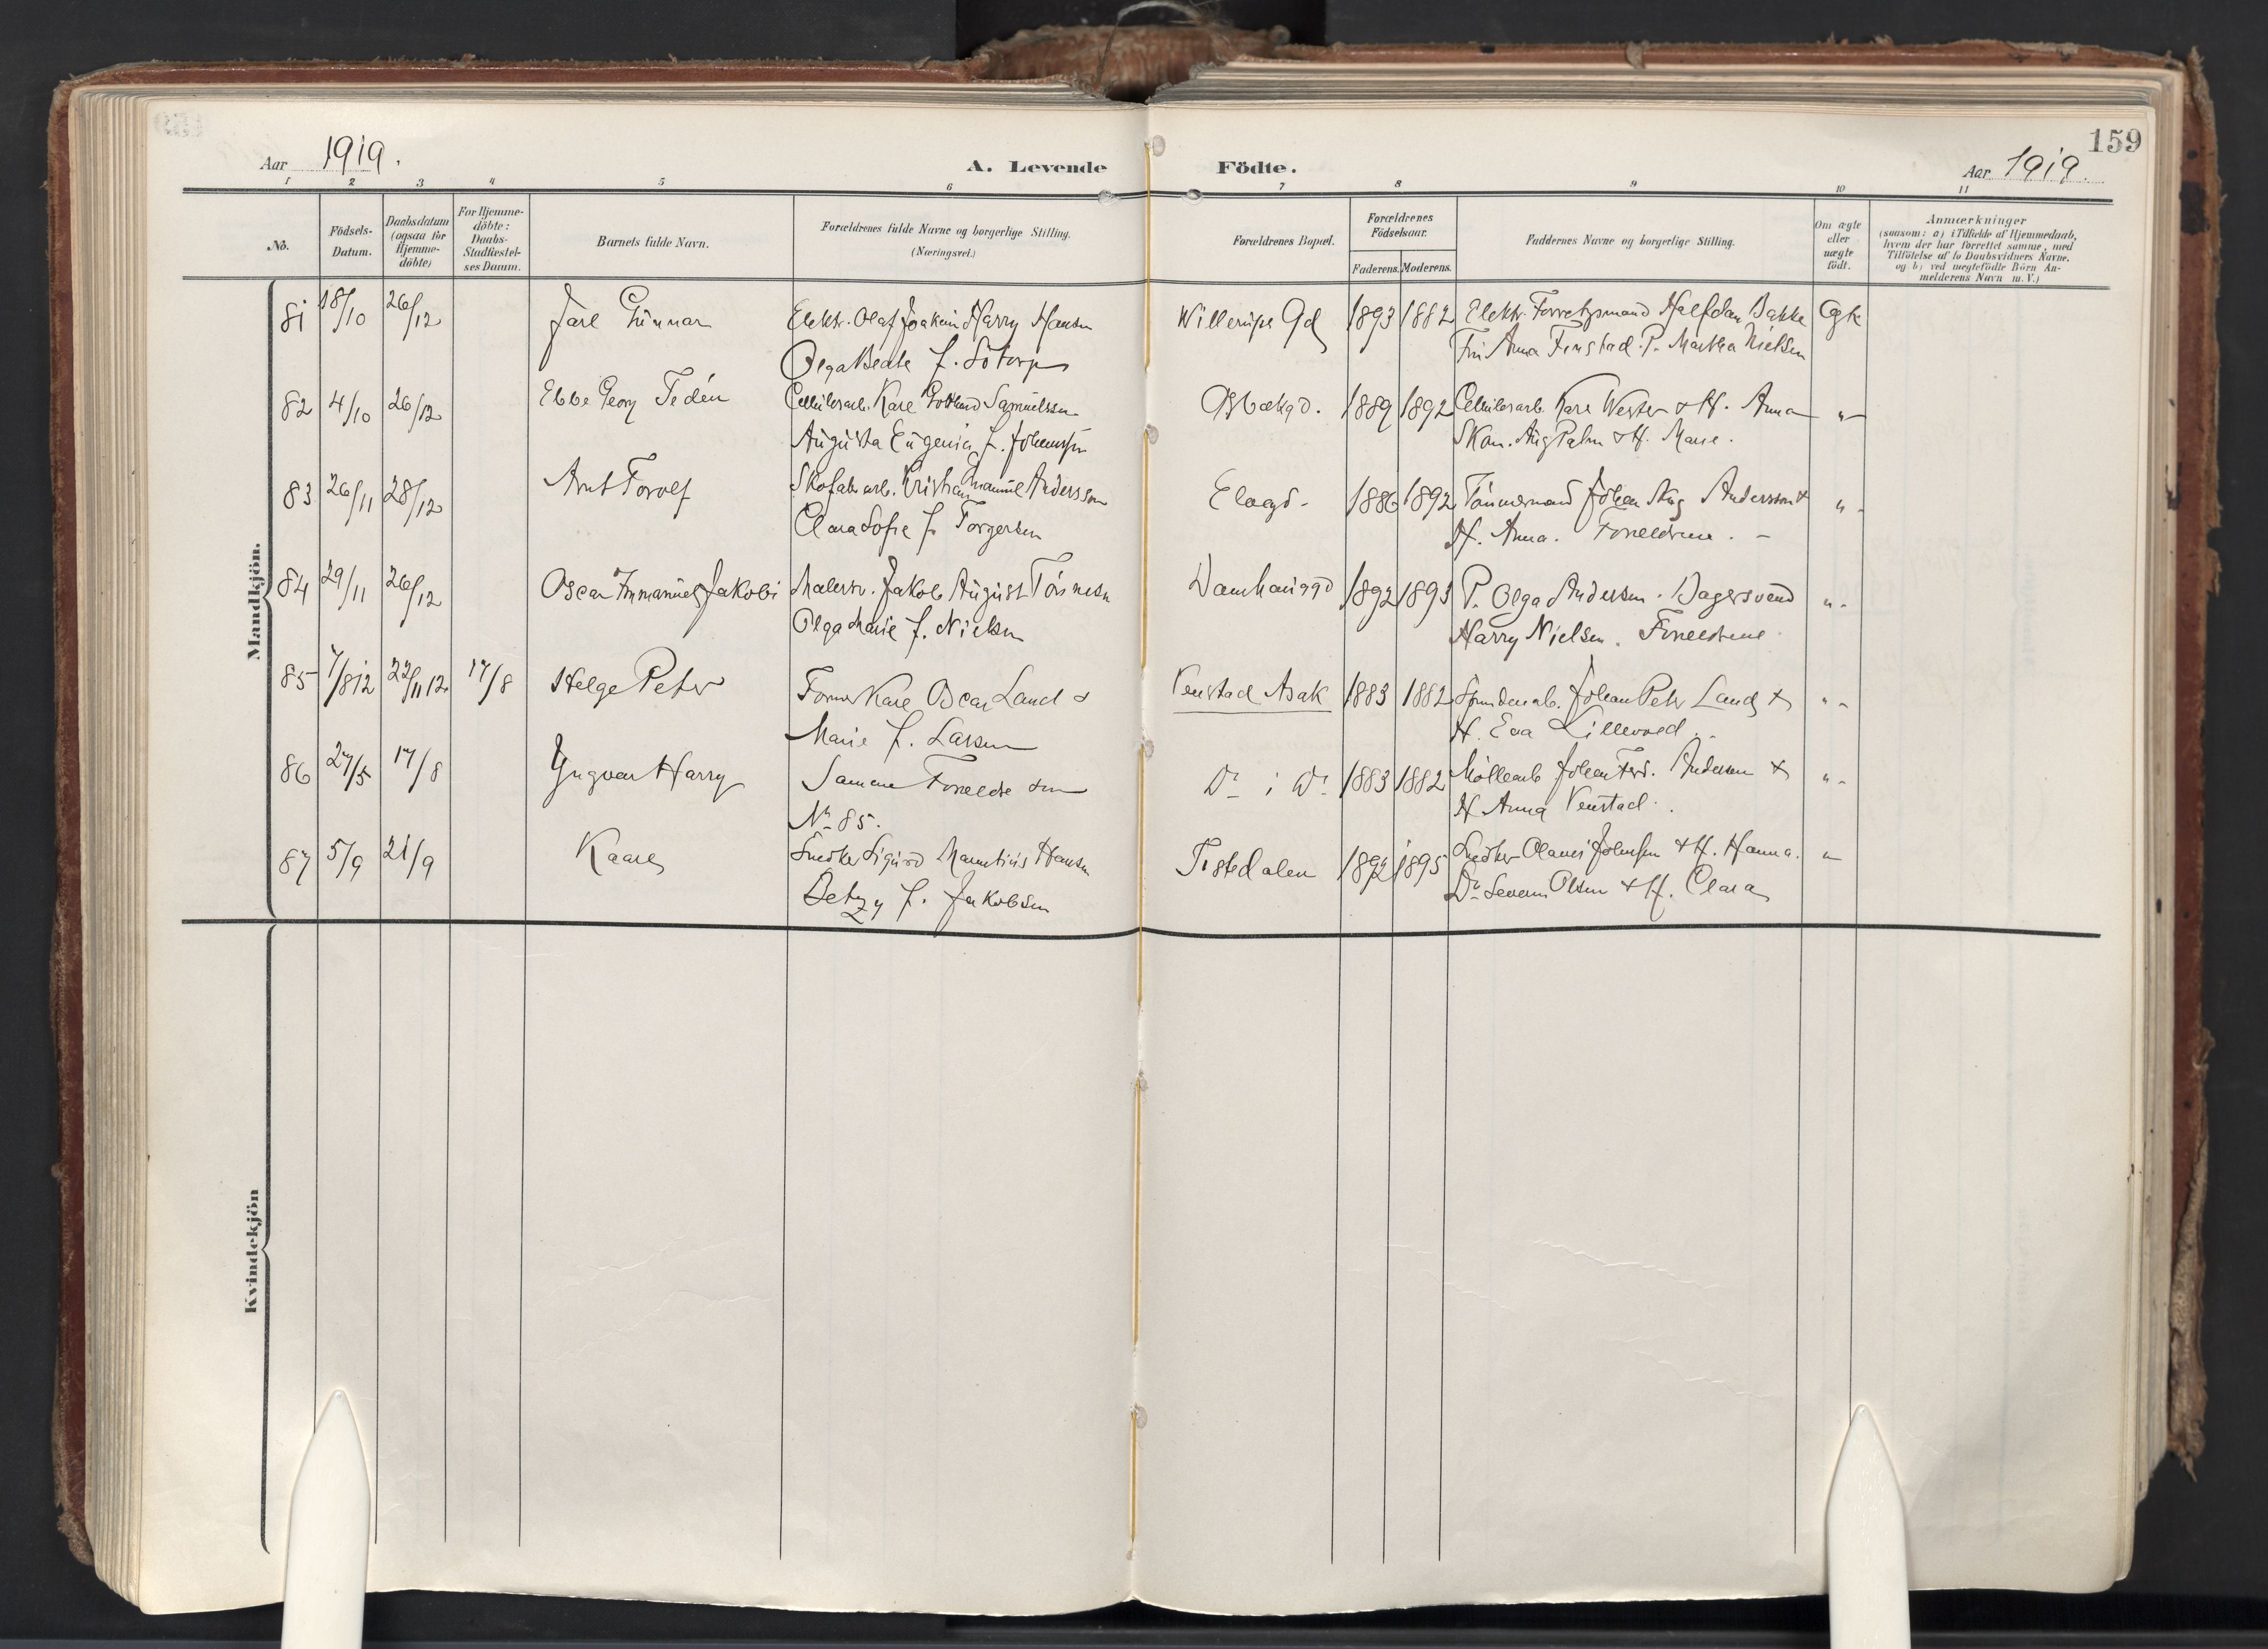 159
Aar 1919.
A. Levende Födte.
Aar 1919.
1 2 3 4 5 6 7 8 9 10 11
No.
Födsels-Datum.
Daabsdatum (ogsaa for Hjemme-döbte)
For Hjemme-döbte: Daabs-Stadfæstel-ses Datum.
Barnets fulde Navn.
Forældrenes fulde Navne og borgerlige Stilling.
(Næringsvei.)
Forældrenes Bopæl.
Forældrenes Födselsaar.
Faderens. Moderens.
Faddernes Navne og borgerlige Stilling.
Om ægte eller uægte födt.
Anmærkninger
(saasom: a) i Tilfælde af Hjemmedaab,
hvem der har forrettet samme, med
Tilföielse af to Daabsvidners Navne.
og b) ved uægtefödte Börn An-
melderens Navn m. V.)
Mandkjön.
81 18/10 26/12 Jarl Gunnar Elektr. Olaf Joakim Harry Hansen Willerups Gd 1893 1882 Elektr. Forretgsmand Halfdan Bakke Egte
Olga Beate f. Sötorp Frü Anna Finstad. P. Martha Nielsen
82 4/10 26/12 Ebbe Georg Tedén Cellulosearb. Karl Gottlund Samuelsson 1889 1892 Cellulosarb. Karl Wester & H. Anna "
Augusta Eugenia f. Johansson Skom. Aug Palm & H. Marie.
83 26/11 28/12 Arnt Torolf Skofabr arb. Kristian Emanuel Andersson 1886 1892 Tömmermand Johan Aug Andersson & "
Clara Sofie f. Torgersen H. Anna. Foreldrene. -
84 29/11 26/12 Oscar Immanuel Jakobi Malersv. Jakob August Tönnesen Damhauggd 1892 1893 P. Olga Andersen. Bagersvend "
Olga Marie f. Nielsen Harry Nielsen. Foreldrene.
85 7/8 12 22/11 12 17/8 Helge Peter Former Karl Oscar Land & Venstad Asak 1883 1882 Johan Peter Land &
Marie f. Larsen H. Eva Lillevold.
86 27/5 17/8 Yngvar Harry Samme Foreldre som Do i Do 1883 1882 Möllearb Johan Ferd. Andersen & "
No 85. H Anna Venstad.
87 5/9 21/9 Kaare Snedker Sigurd Mauritius Hansen Tistedalen 1892 1895 Snedker Olaus Johnsen & H. Hanna. "
Betzy f. Jakobsen Do Severin Olsen & H. Clara
Kvindekjön